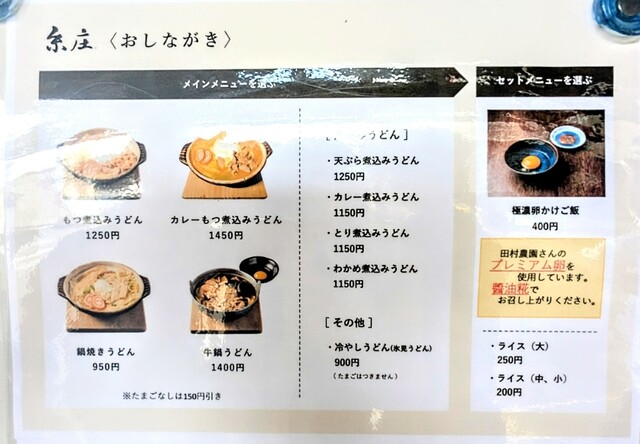 糸庄〈おしながき〉
メインメニューを選ぶ
もつ煮込みうどん
1250円
カレーもつ煮込みうどん
1450円
鍋焼きうどん
950円
牛鍋うどん
1400円
※たまごなしは150円引き
うどん］
・天ぷら煮込みうどん
1250円
・カレー煮込みうどん
1150円
・とり煮込みうどん
1150円
・わかめ煮込みうどん
1150円
［その他］
・冷やしうどん(氷見うどん)
900円
（たまごはつきません）
セットメニューを選ぶ
極濃卵かけご飯
400円
田村農園さんの
プレミアム卵を
使用しています。
醤油糀で
お召し上がりください。
・ライス（大）
250円
・ライス（中、小）
200円